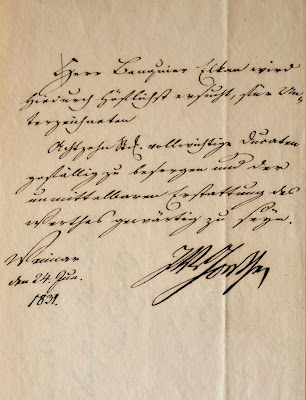 Herr Banquier Elkan wird
hiedurch höflichst ersucht, für Un-
terzeichneten
Achtzehn Stk. vollwichtige Ducaten
gefällig zu besorgen und der
unmittelbaren Erstattung des
Werthes gewärtig zu seyn.
Weimar
den 24. Jun.
1831.
JWGoethe